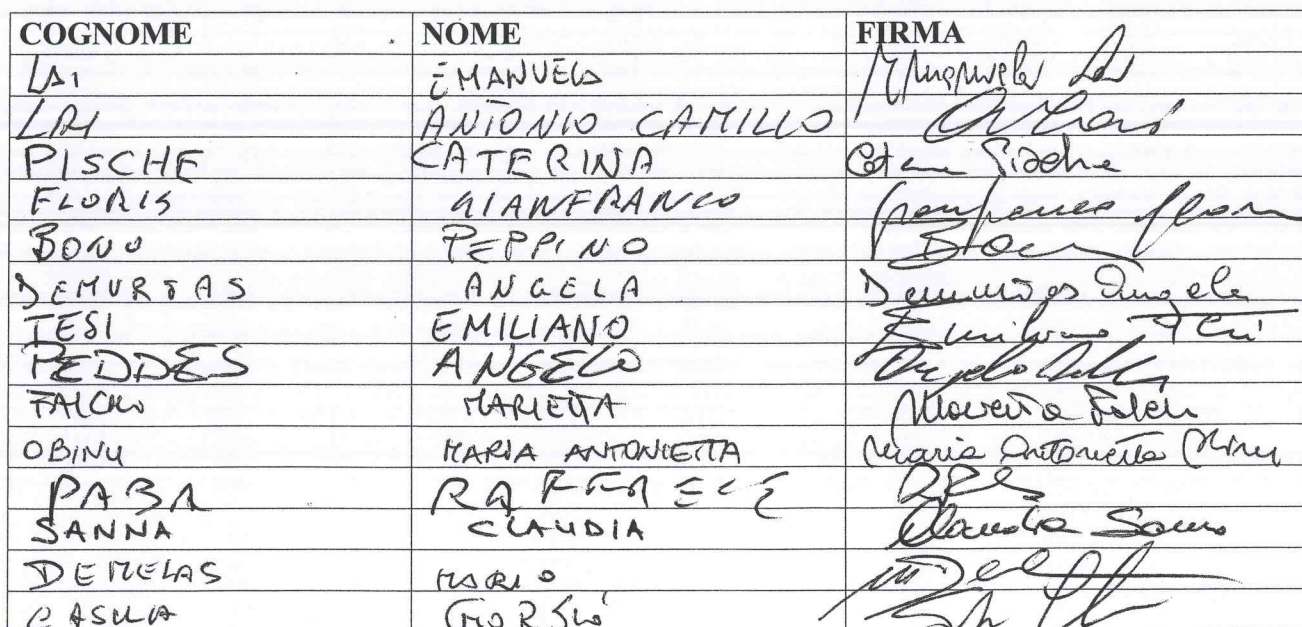 COGNOME NOME FIRMA
LAI EMANUELA Emanuela Lai
LAI ANTONIO CAMILLO
PISCHE CATERINA
FLORIS GIANFRANCO Gianfranco Floris
BONO PEPPINO
DEMURTAS ANGELA Demurtas Angela
TESI EMILIANO Emiliano Tesi
PEDDES ANGELO Angelo
FALCHI MARIETTA Marietta Falchi
OBINU MARIA ANTONIETTA Maria Antonietta Obinu
PABA RAFFAELE
SANNA CLAUDIA Claudia Sanna
DEMELAS MARIO
CASULA